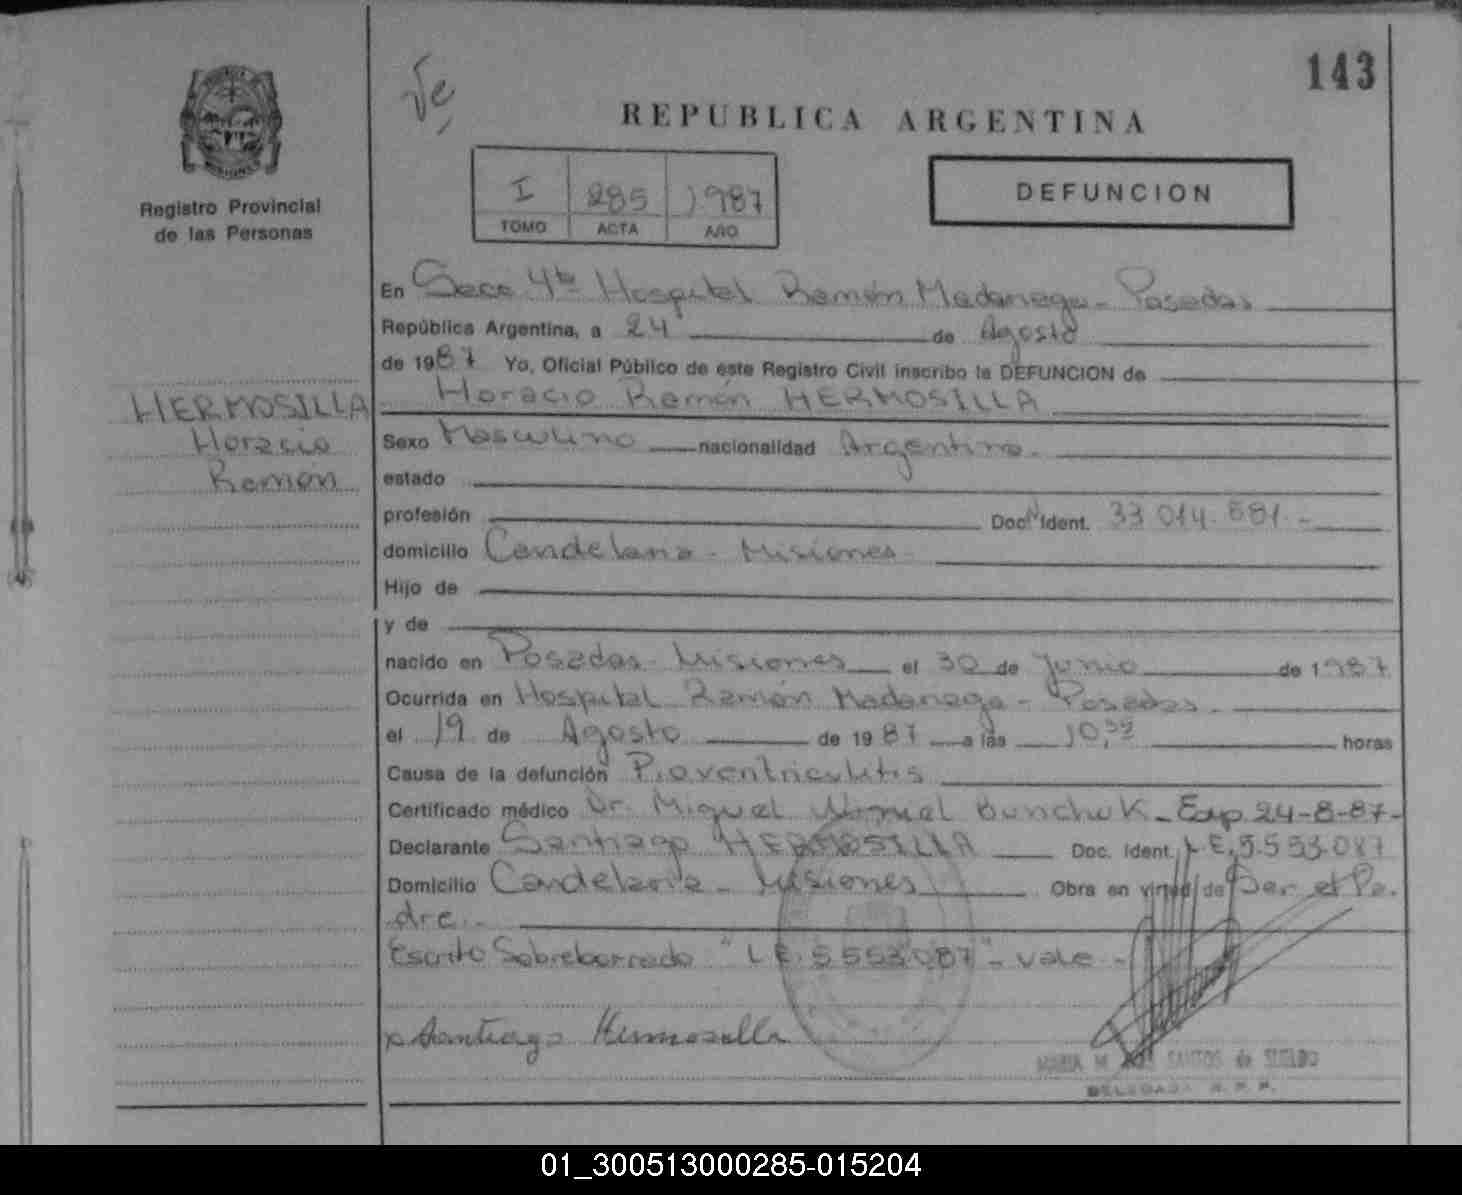 143
Registro Provincial
de las Personas
REPUBLICA ARGENTINA
I 285 1987
TOMO ACTA AÑO
DEFUNCION
En Secc 4ta Hospital Ramón Madariaga - Posadas
República Argentina, a 24 de Agosto
de 1987 Yo, Oficial Público de este Registro Civil inscribo la DEFUNCION de
HERMOSILLA
Horacio
Ramón
Horacio Ramón HERMOSILLA
Sexo Masculino nacionalidad Argentina.
estado
profesión Doc. Ident. 33 014.581.-
domicilio Candelaria - Misiones
Hijo de
y de
nacido en Posadas - Misiones el 30 de Junio de 1987
Ocurrida en Hospital Ramón Madariaga - Posadas.
el 19 de Agosto de 1987 a las 10,30 horas
Causa de la defunción Pioventriculitis
Certificado médico Dr. Miguel Bunchuk - Exp 24-8-87-
Declarante Santiago HERMOSILLA Doc. Ident. L.E. 5.553.087
Domicilio Candelaria - Misiones Obra en virtud de Ser el Pa.
dre.-
Escrito Sobreborrado "L.E. 5553.087" - vale -
x Santiago Hermosilla
MARIA M SANTOS de SUELDO
DELEGADA R. P. P.
01_300513000285-015204